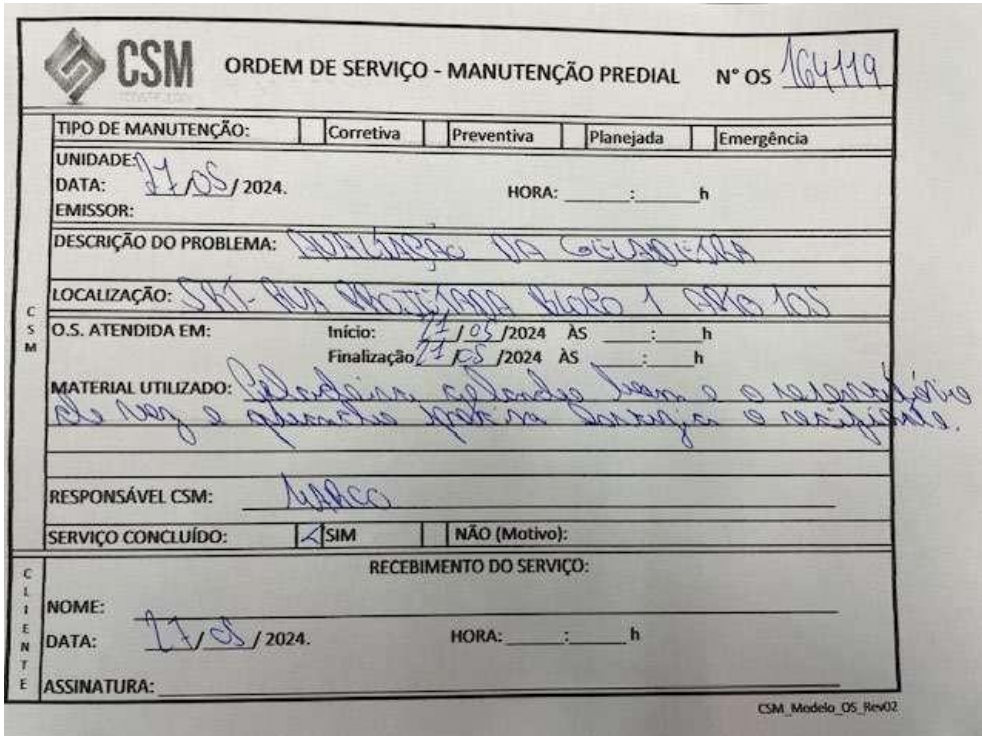 CSM ORDEM DE SERVIÇO - MANUTENÇÃO PREDIAL N° OS 164119
TIPO DE MANUTENÇÃO: Corretiva Preventiva Planejada Emergência
UNIDADE:
DATA: 27/05/2024. HORA: ____:____h
EMISSOR:
DESCRIÇÃO DO PROBLEMA: AVALIAÇÃO DA GELADEIRA
LOCALIZAÇÃO: RUA BLOCO 1 105
O.S. ATENDIDA EM: Início: 27/05/2024 ÀS ____:____h
Finalização 27/05/2024 ÀS ____:____h
MATERIAL UTILIZADO: Geladeira gelando bem e o reservatório
de vez e quando o recipiente.
RESPONSÁVEL CSM: MARCO
SERVIÇO CONCLUÍDO: SIM NÃO (Motivo):
RECEBIMENTO DO SERVIÇO:
NOME:
DATA: 27/05/2024. HORA: ____:____h
ASSINATURA:
CSM
CLIENTE
CSM_Modelo_OS_Rev02